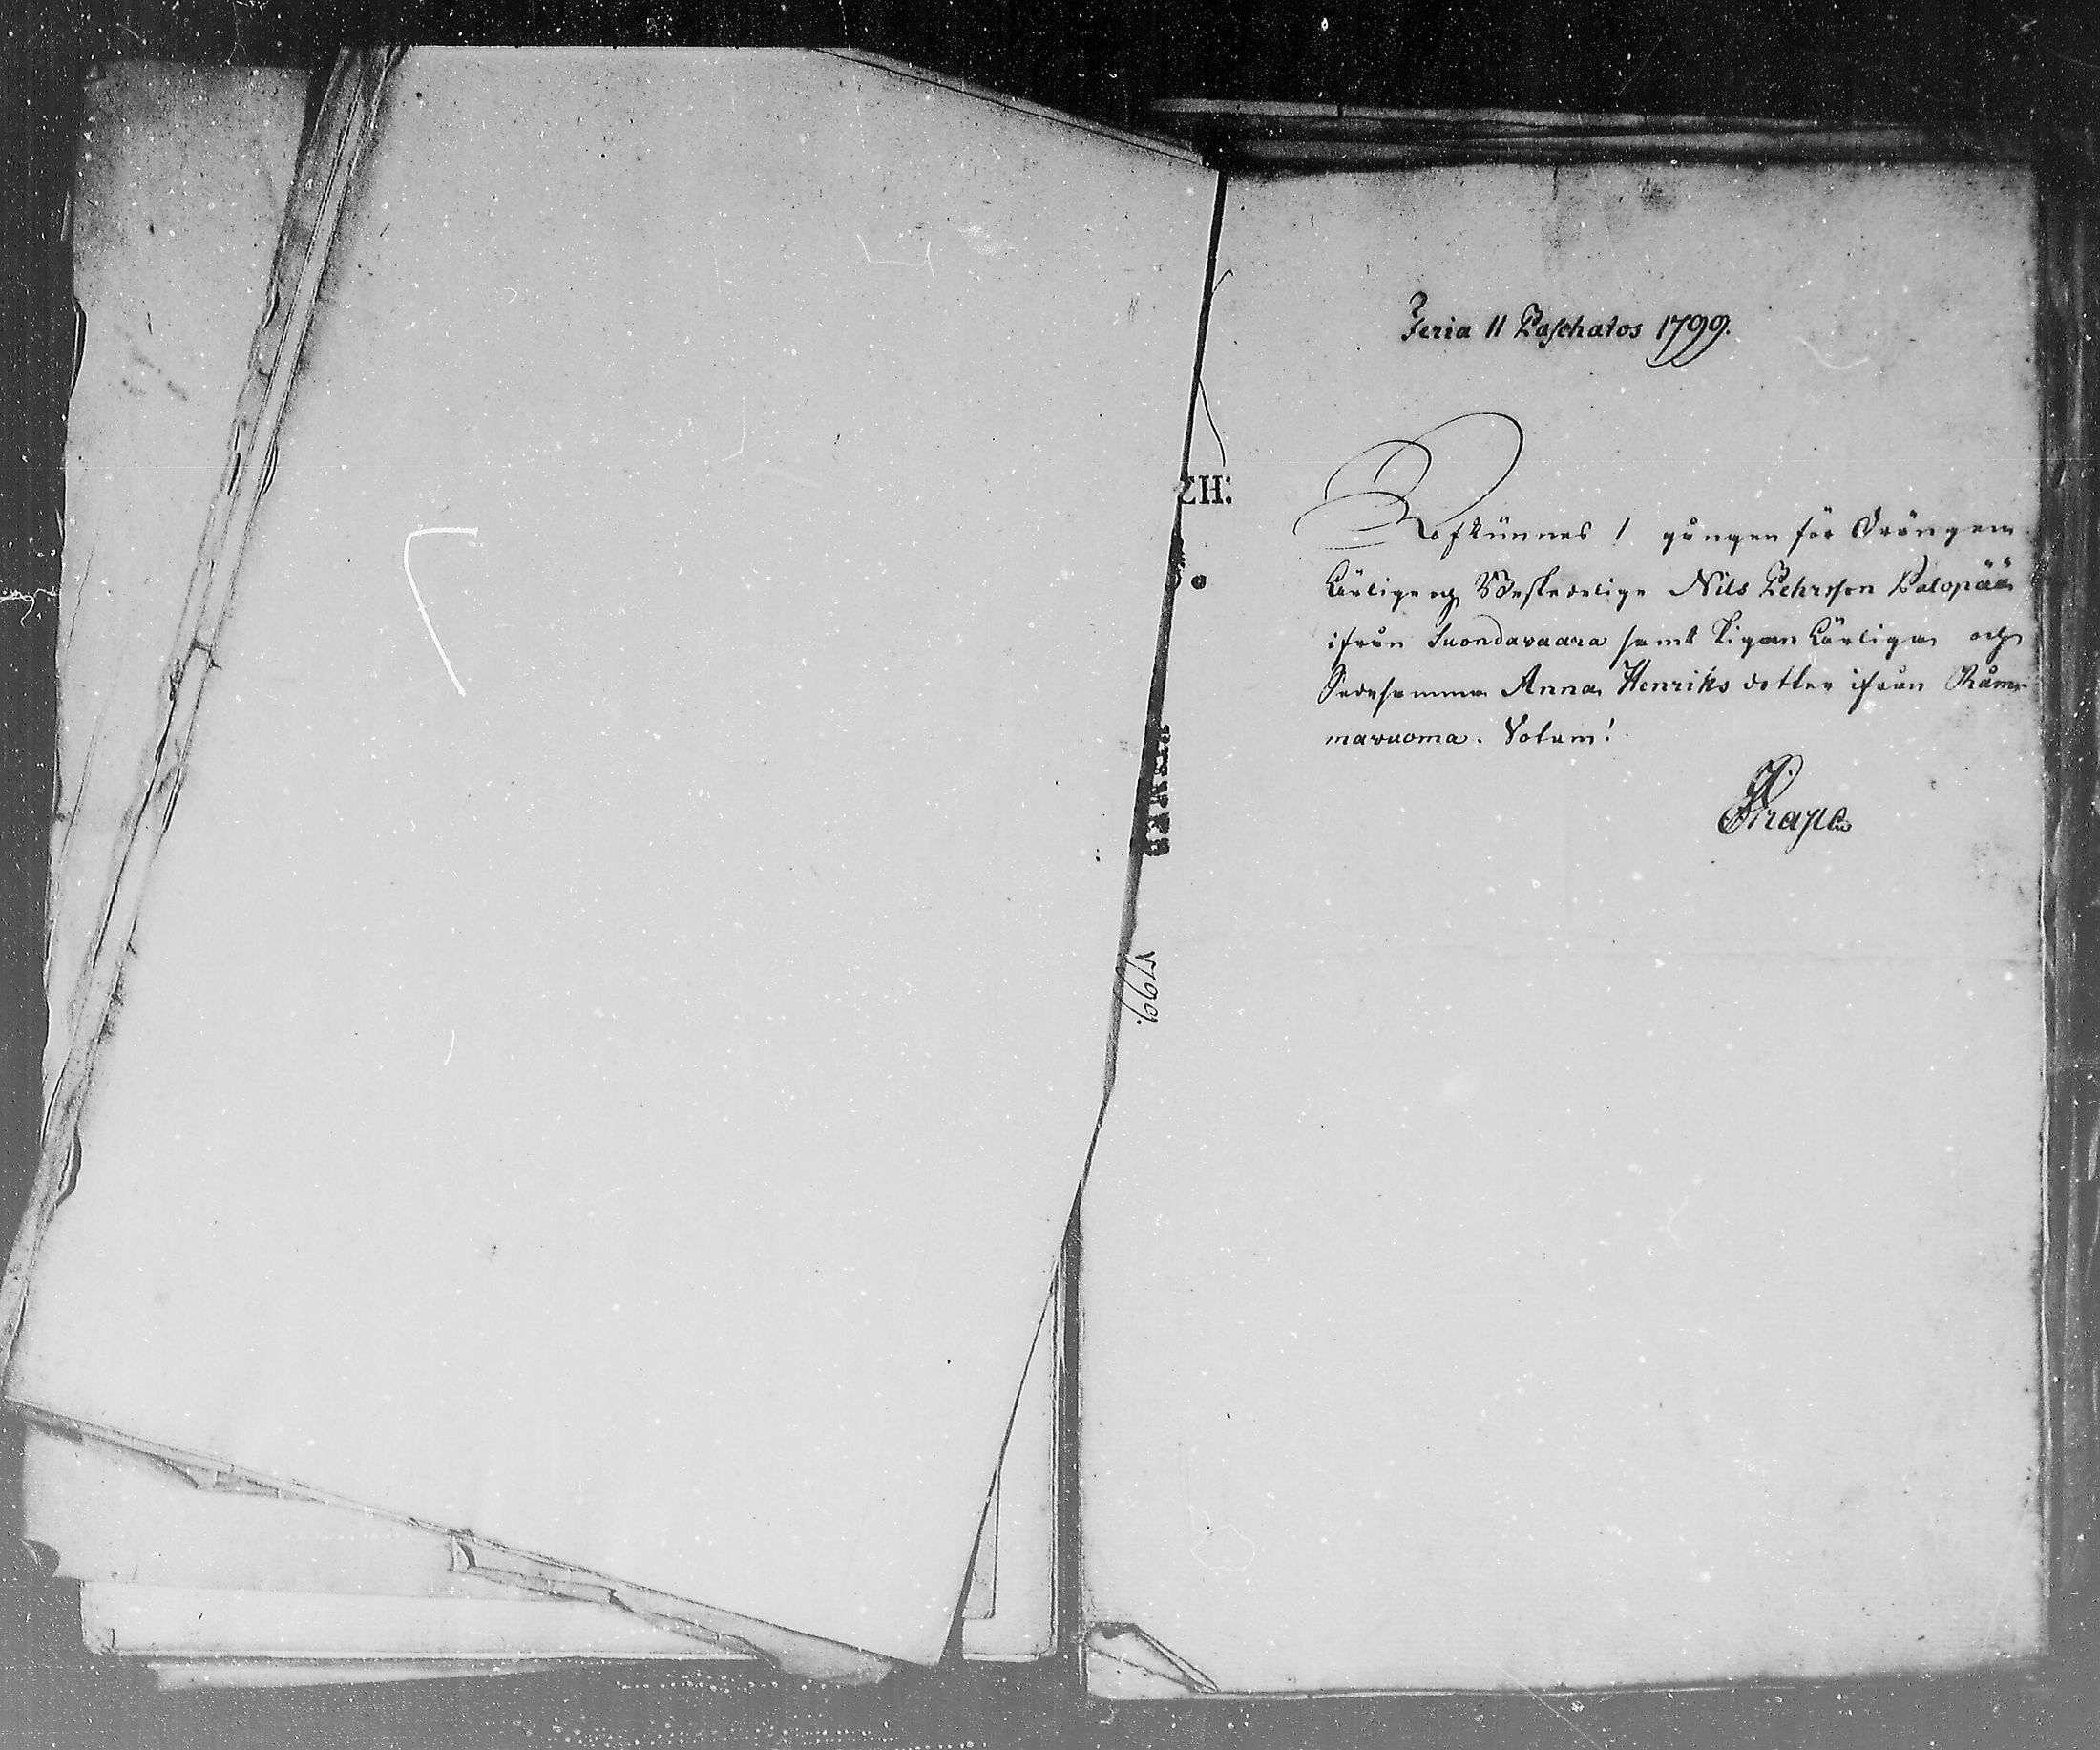 Feria II Paschatos 1799.
Afkünnes 1 gången för Drängen
Ärlige och Beskedelige Nils Pehrsson Palopää
ifrån Suondavaara samt Pigan Ärliga och
Sedesamma Anna Henriks dotter ifrån Råm-
mavuoma.
1799.